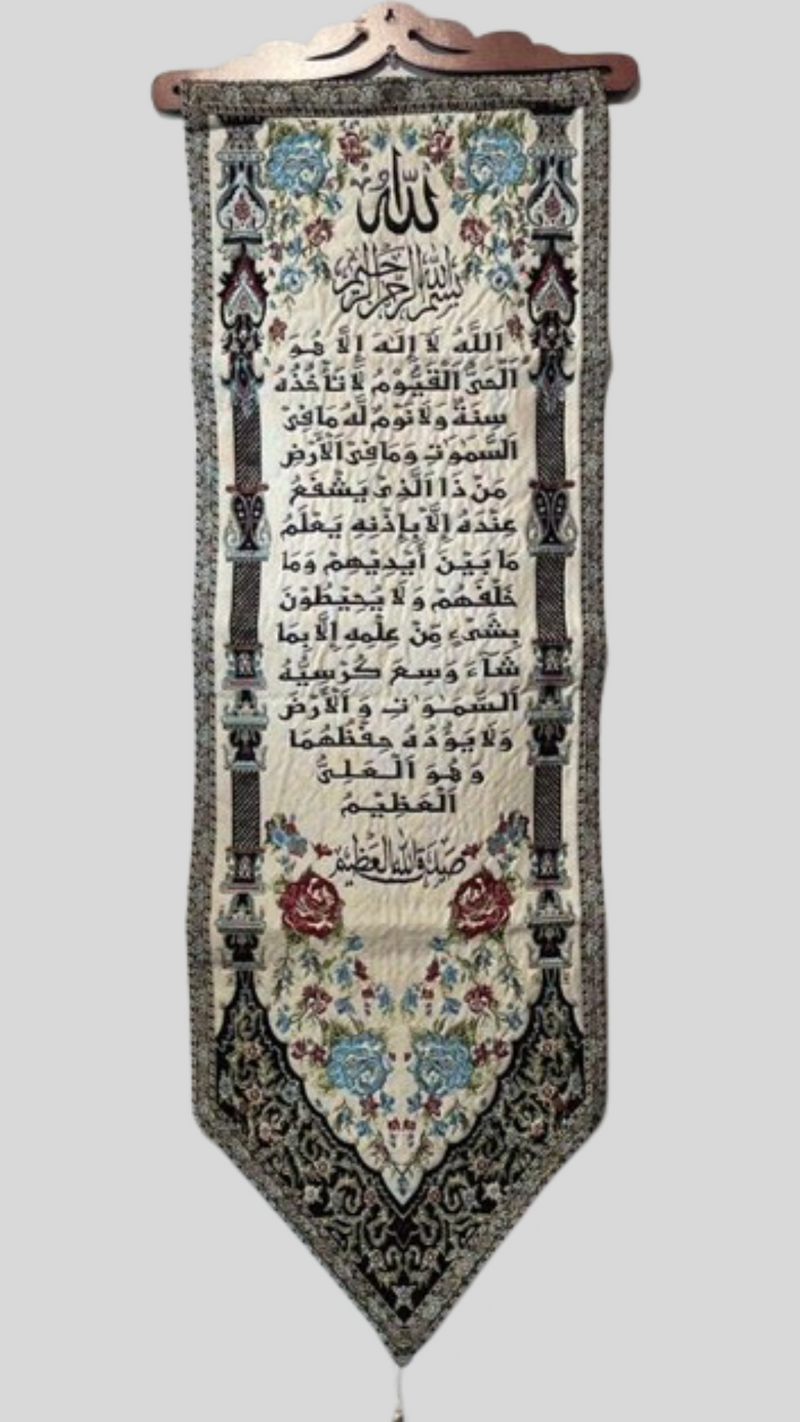 الله
بسم الله الرحمن الرحيم
اَللّٰهُ لَا إِلٰهَ إِلَّا هُوَ
اَلْحَيُّ الْقَيُّومُ لَا تَأْخُذُهُ
سِنَةٌ وَلَا نَوْمٌ لَّهُ مَا فِيْ
اَلسَّمٰوٰتِ وَمَا فِيْ الْأَرْضِ
مَنْ ذَا الَّذِيْ يَشْفَعُ
عِنْدَهُ إِلَّا بِإِذْنِهِ يَعْلَمُ
مَا بَيْنَ أَيْدِيْهِمْ وَمَا
خَلْفَهُمْ وَلَا يُحِيْطُوْنَ
بِشَيْءٍ مِّنْ عِلْمِهِ إِلَّا بِمَا
شَآءَ وَسِعَ كُرْسِيُّهُ
اَلسَّمٰوٰتِ وَ اَلْأَرْضَ
وَلَا يَؤُدُهُ حِفْظُهُمَا
وَ هُوَ اَلْعَلِيُّ
اَلْعَظِيْمُ
صدق الله العظيم